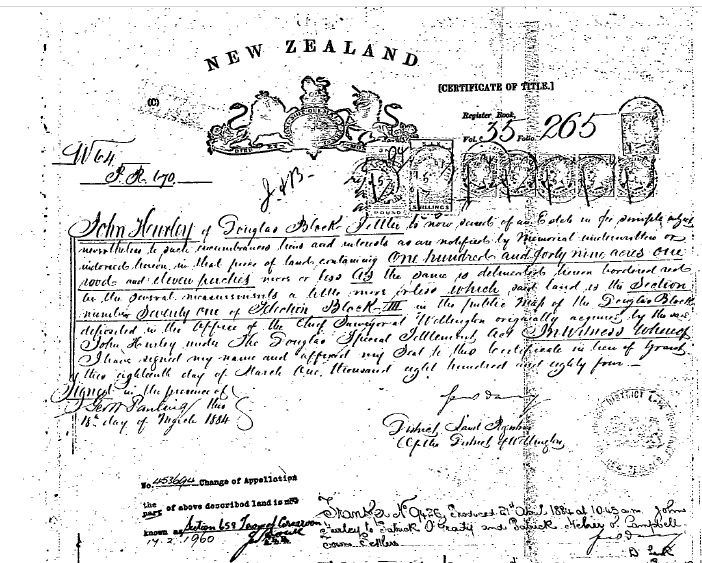 NEW ZEALAND
(C)
[CERTIFICATE OF TITLE.]
Register Book,
Vol. 35 Folio 265
W 64
P. R. 670.
POUND
SHILLINGS
John Hurley of Douglas Block Settler is now seised of an Estate in fee simple subject
nevertheless to such incumbrances liens and interests as are notified by Memorial underwritten or
indorsed hereon in that piece of land containing One hundred and forty nine acres one
rood and eleven perches more or less as the same is delineated hereon bordered red
be the several measurements a little more or less which said land is the Section
number Seventy one of Election Block III in the public map of the Douglas Block
deposited in the Office of the Chief Surveyor at Wellington originally acquired by the said
John Hurley under The Douglas Special Settlement Act In Witness whereof
I have signed my name and affixed my Seal to this Certificate in lieu of Grant
this eighteenth day of March One thousand eight hundred and eighty four.
Signed in the presence of
this
18th day of March 1884
District Land Registrar
Of the District of Wellington
DISTRICT LAND
No. 453694 Change of Appellation
the part of above described land is now
known as Section 659 Town of
17. 2. 1960
Transfer No 9426, Produced 21st April 1884 at 10.45 a.m. John
Hurley to Patrick O'Grady and Patrick Campbell
Settlers